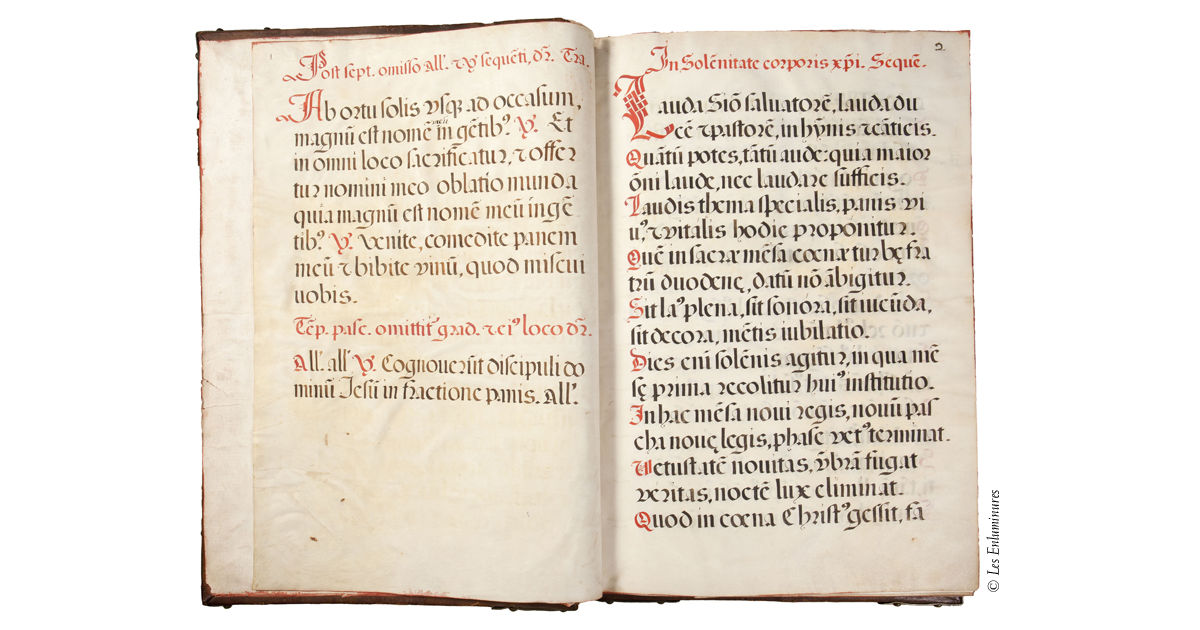 Post sept. omisso all'. ⁊ ꝟ̷ sequẽti, dr̃. Tra.
Ab ortu solis vsqꝫ ad occasum,
magnũ est nomẽ meũ in gẽtib⁹. ℣. Et
in omni loco sacrificatur, ⁊ offer
tur nomini meo oblatio munda
quia magnũ est nomẽ meũ in gẽ
tib⁹. ℣. Venite, comedite panem
meũ ⁊ bibite vinũ, quod miscui
uobis.
Tẽp. pasc. omittit' grad. ⁊ ei⁹ loco dr̃.
All'. all' ℣. Cognouerũt discipuli do
minũ Jesũ in fractione panis. All'.
2.
In Solẽnitate corporis xp̃i. Sequẽ.
Lauda Siõ saluatorẽ, lauda du
cẽ ⁊ pastorẽ, in hỹnis ⁊ cãticis.
Quãtũ potes, tãtũ aude: quia maior
õni laude, nec laudare sũfficis.
Laudis thema specialis, panis vi
u⁹, ⁊ vitalis hodie proponitur.
Quẽ in sacræ mẽsa cœnæ turbę fra
trũ duodenę, datũ nõ ãbigitur.
Sit la⁹ plena, sit sonora, sit iucũda,
sit decora, mẽtis iubilatio.
Dies enĩ solẽnis agitur, in qua mẽ
sę prima recolitur hui⁹ institutio.
In hac mẽsa noui regis, nouũ pas
cha nouę legis, phasẽ vet⁹ terminat.
Vetustatẽ nouitas, ṽbrã fugat
veritas, noctẽ lux eliminat.
Quod in cœna Christ⁹ gessit, fa
© Les Enluminures